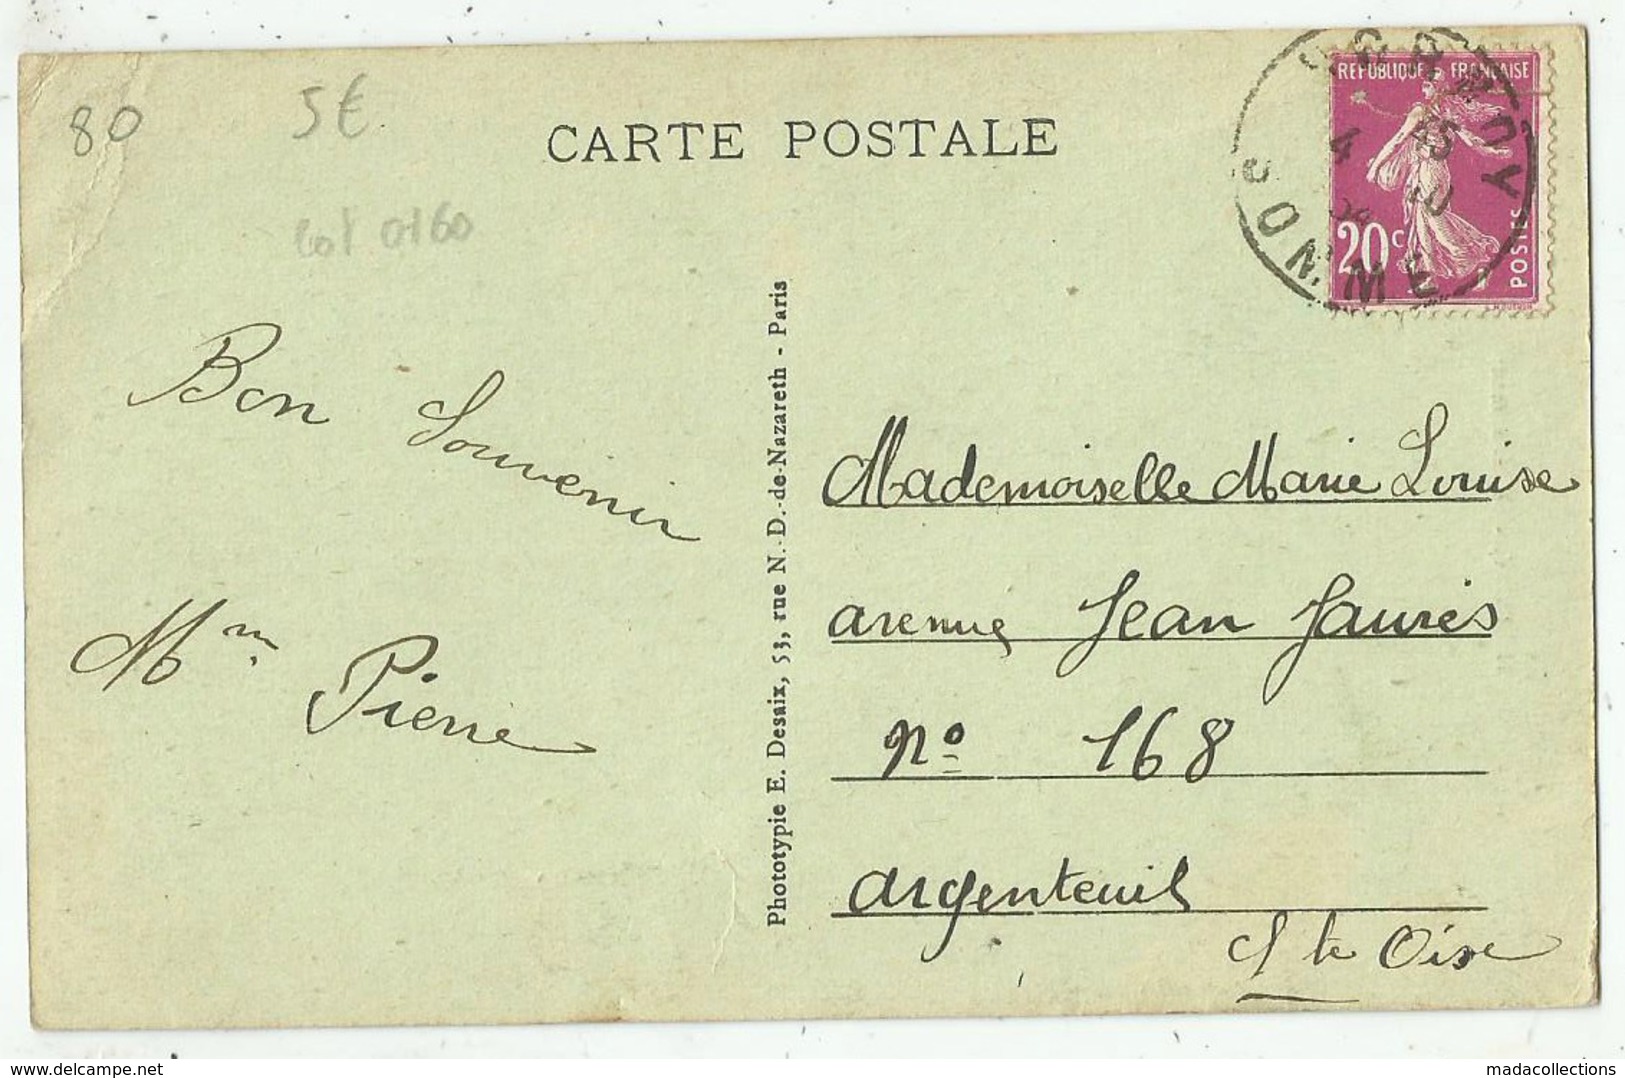 80
5€
CARTE POSTALE
RÉPUBLIQUE FRANÇAISE
20c
POSTES
SOMME
Bon Souvenir
Mme Pierre
Phototypie E. Desaix, 53, rue N.-D.-de-Nazareth - Paris
Mademoiselle Marie Louise
avenue Jean Jaurès
no 168
argenteuil
S te Oise
delcampe.net
madacollections